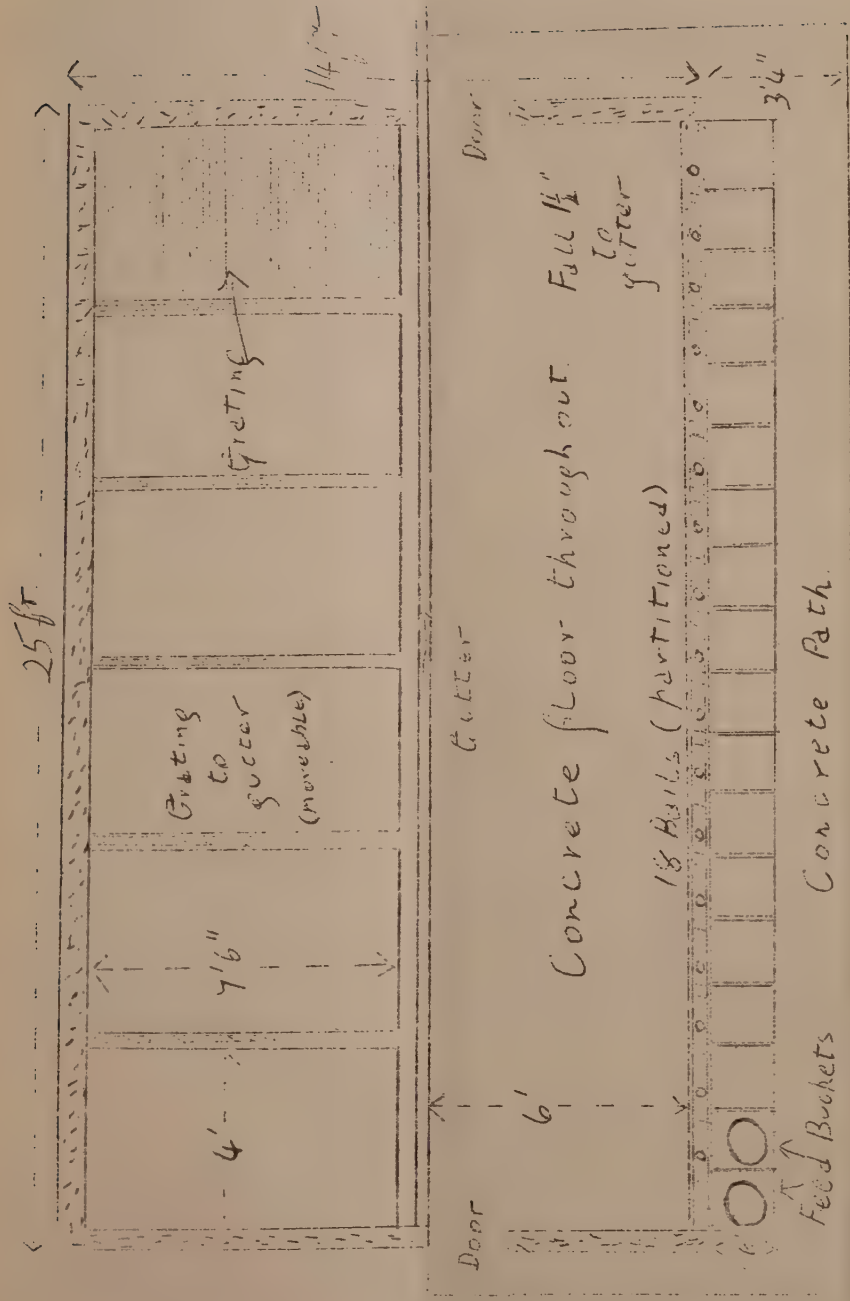 25 ft.
14 ft
Grating
Grating
to
gutter
(moveable)
7'6"
4'
Door
Gutter
Door
Concrete floor throughout.
Fall 1½"
to
gutter
6'
18 Bails (partitioned)
3'4"
Feed Buckets
Concrete Path.